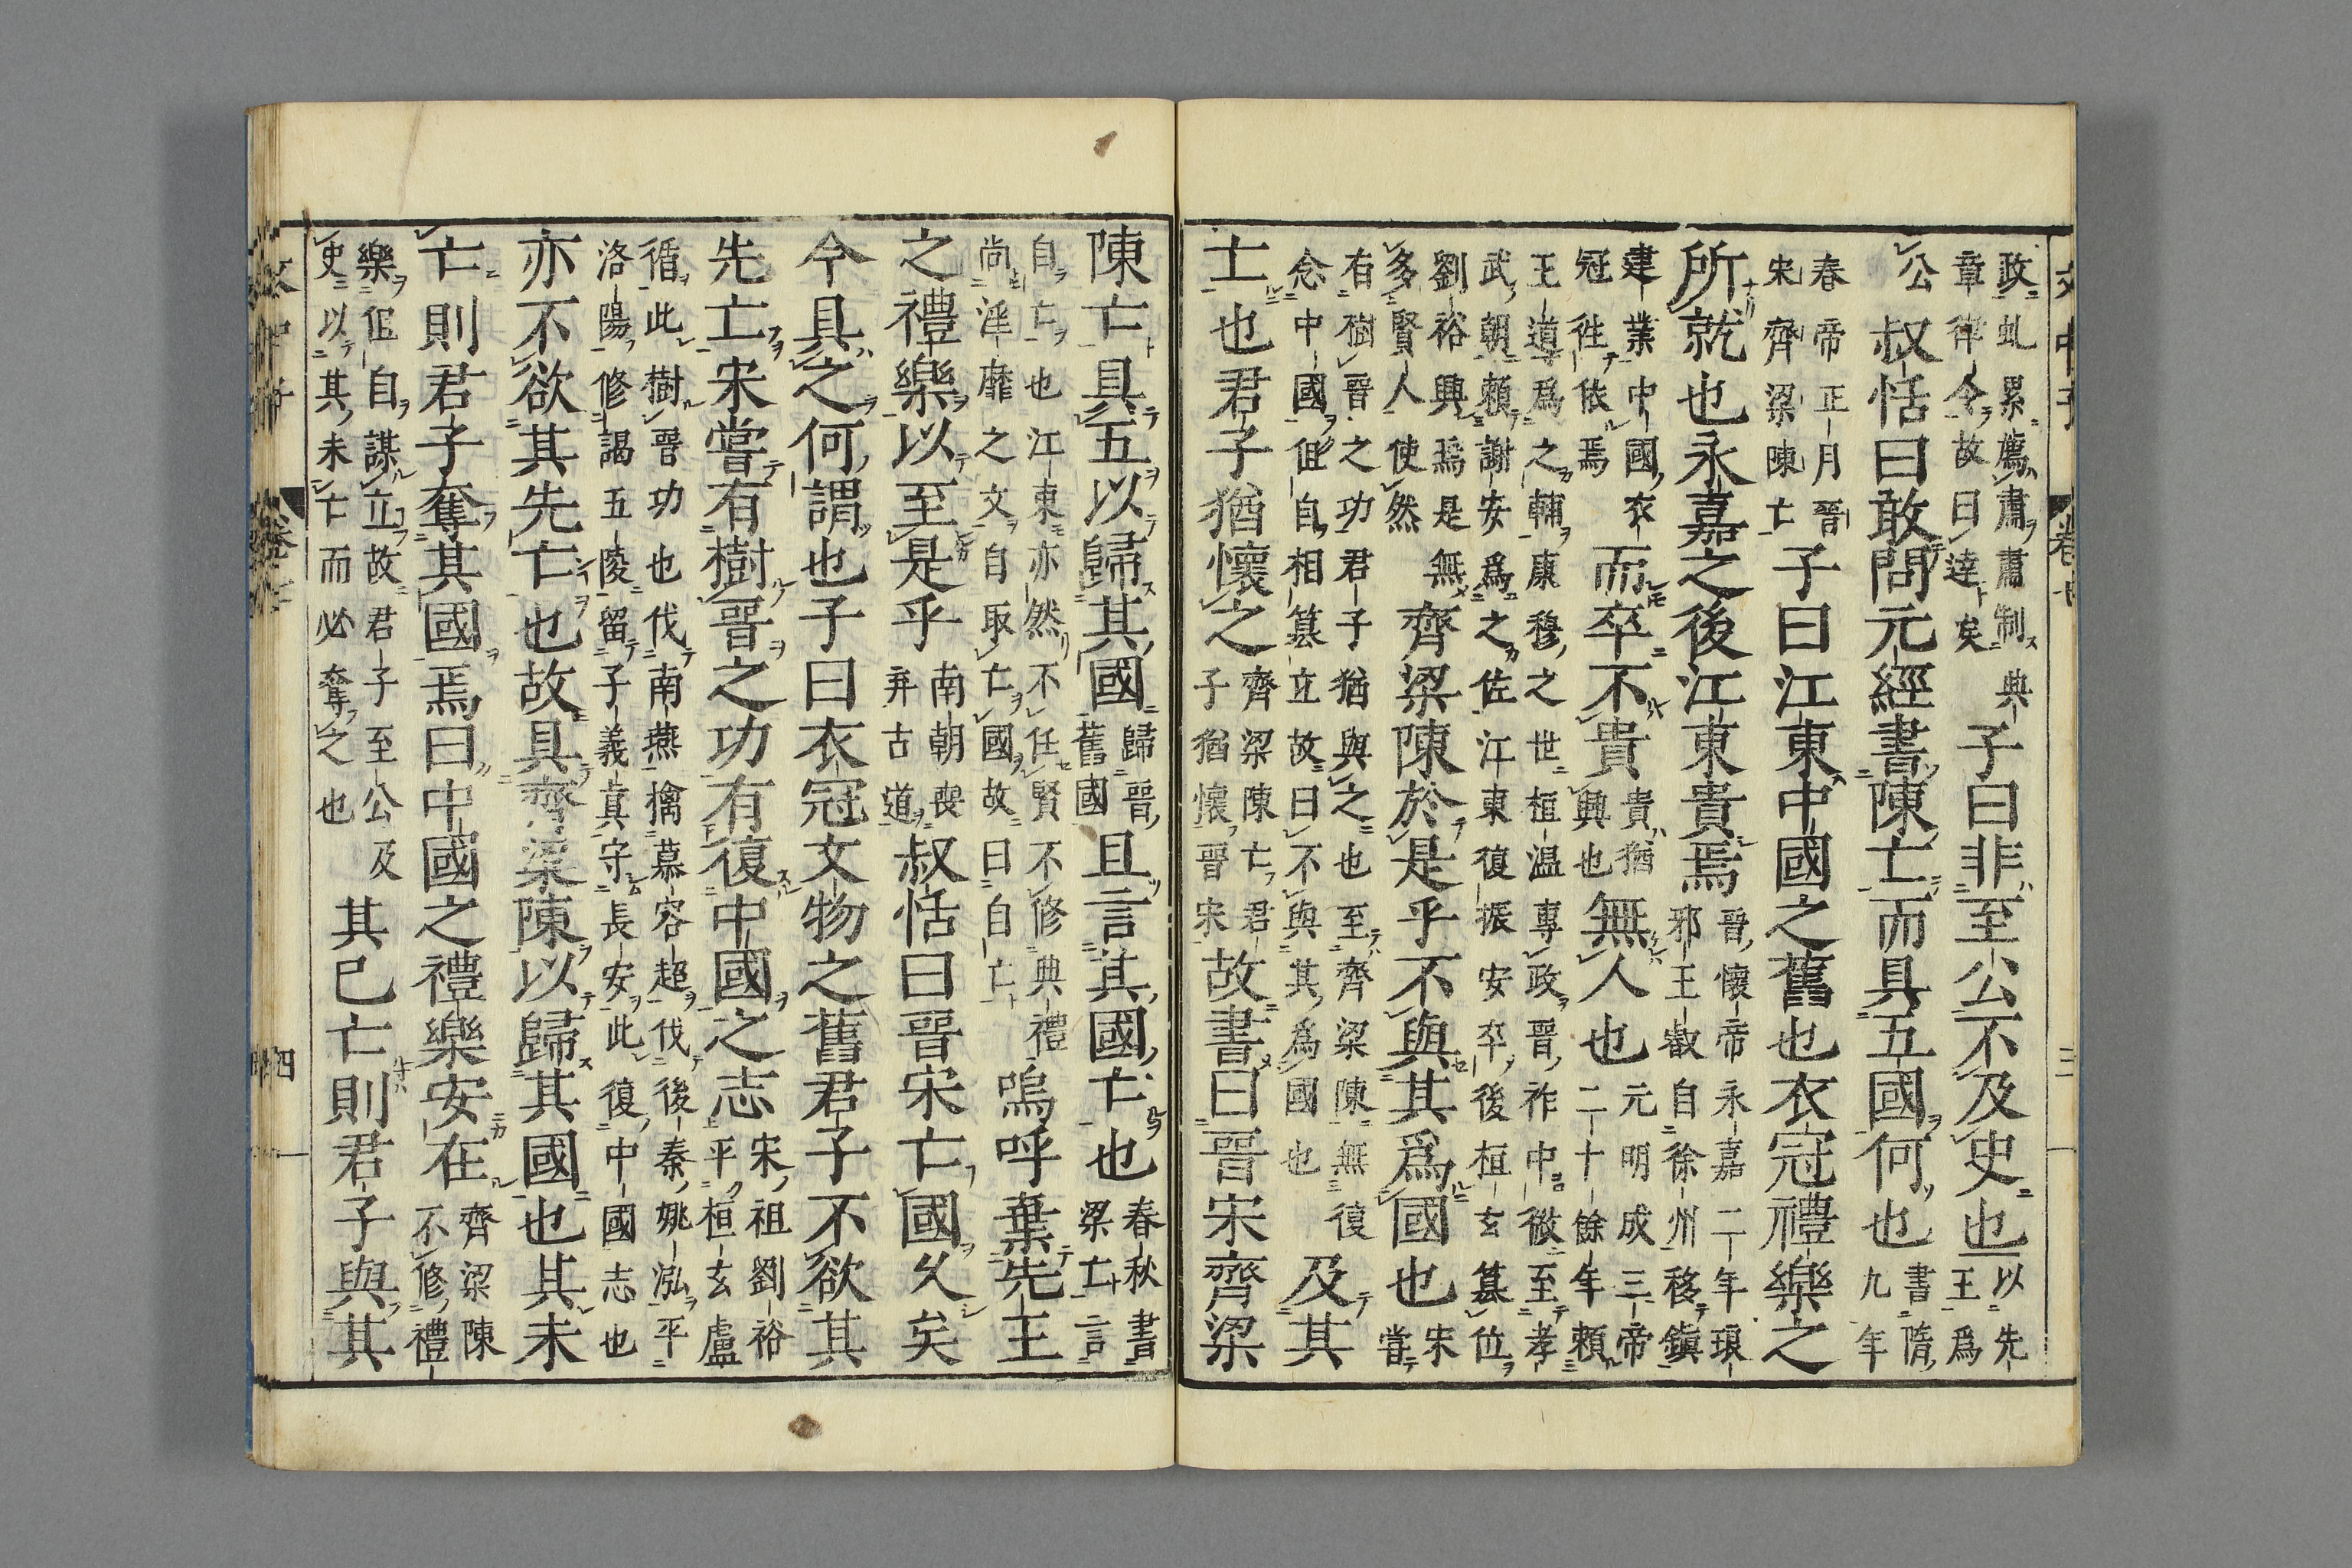 文中子 卷十 三
政虬累薦肅肅制典
章律令故曰達矣
子曰非至公不及史也
以先
王為
公
叔恬曰敢問元經書陳亡而具五國何也
書隋
九年
春帝正月晉
宋齊梁陳亡
子曰江東中國之舊也衣冠禮樂之
所就也永嘉之後江東貴焉
晉懷帝永嘉二年琅
邪王叡自徐州移鎮
建業中國衣
冠徃依焉
而卒不貴
貴猶
興也
無人也
元明成三帝
二十餘年頼
王導為之輔康穆之世桓温專政晉祚中微至孝
武朝頼謝安為之佐江東復振安卒後桓玄簒位
劉裕興焉是無
多賢人使然
齊梁陳於是乎不與其爲國也
宋
嘗
有樹晉之功君子猶與之也至齊梁陳無復
念中國但自相簒立故曰不與其為國也
及其
亡也君子猶懷之
齊梁陳亡君
子猶懷晉宋
故書曰晉宋齊梁
陳亡具五以歸其國
歸晉
舊國
且言其國亡也
春秋書
梁亡言
自亡也江東亦然不任賢不修典禮
尚淫靡之文自取亡國故曰自亡
嗚呼棄先王
之禮樂以至是乎
南朝喪
弃古道
叔恬曰晉宋亡國久矣
今具之何謂也子曰衣冠文物之舊君子不欲其
先亡宋嘗有樹晉之功有復中國之志
宋祖劉裕
平桓玄盧
循此樹晉功也伐南燕擒慕容超伐後秦姚泓平
洛陽修謁五陵留子義真守長安此復中國志也
亦不欲其先亡也故具齊梁陳以歸其國也其未
亡則君子奪其國焉曰中國之禮樂安在
齊梁陳
不修禮
樂但自謀立故君子至公及
史以其未亡而必奪之也
其已亡則君子與其
四